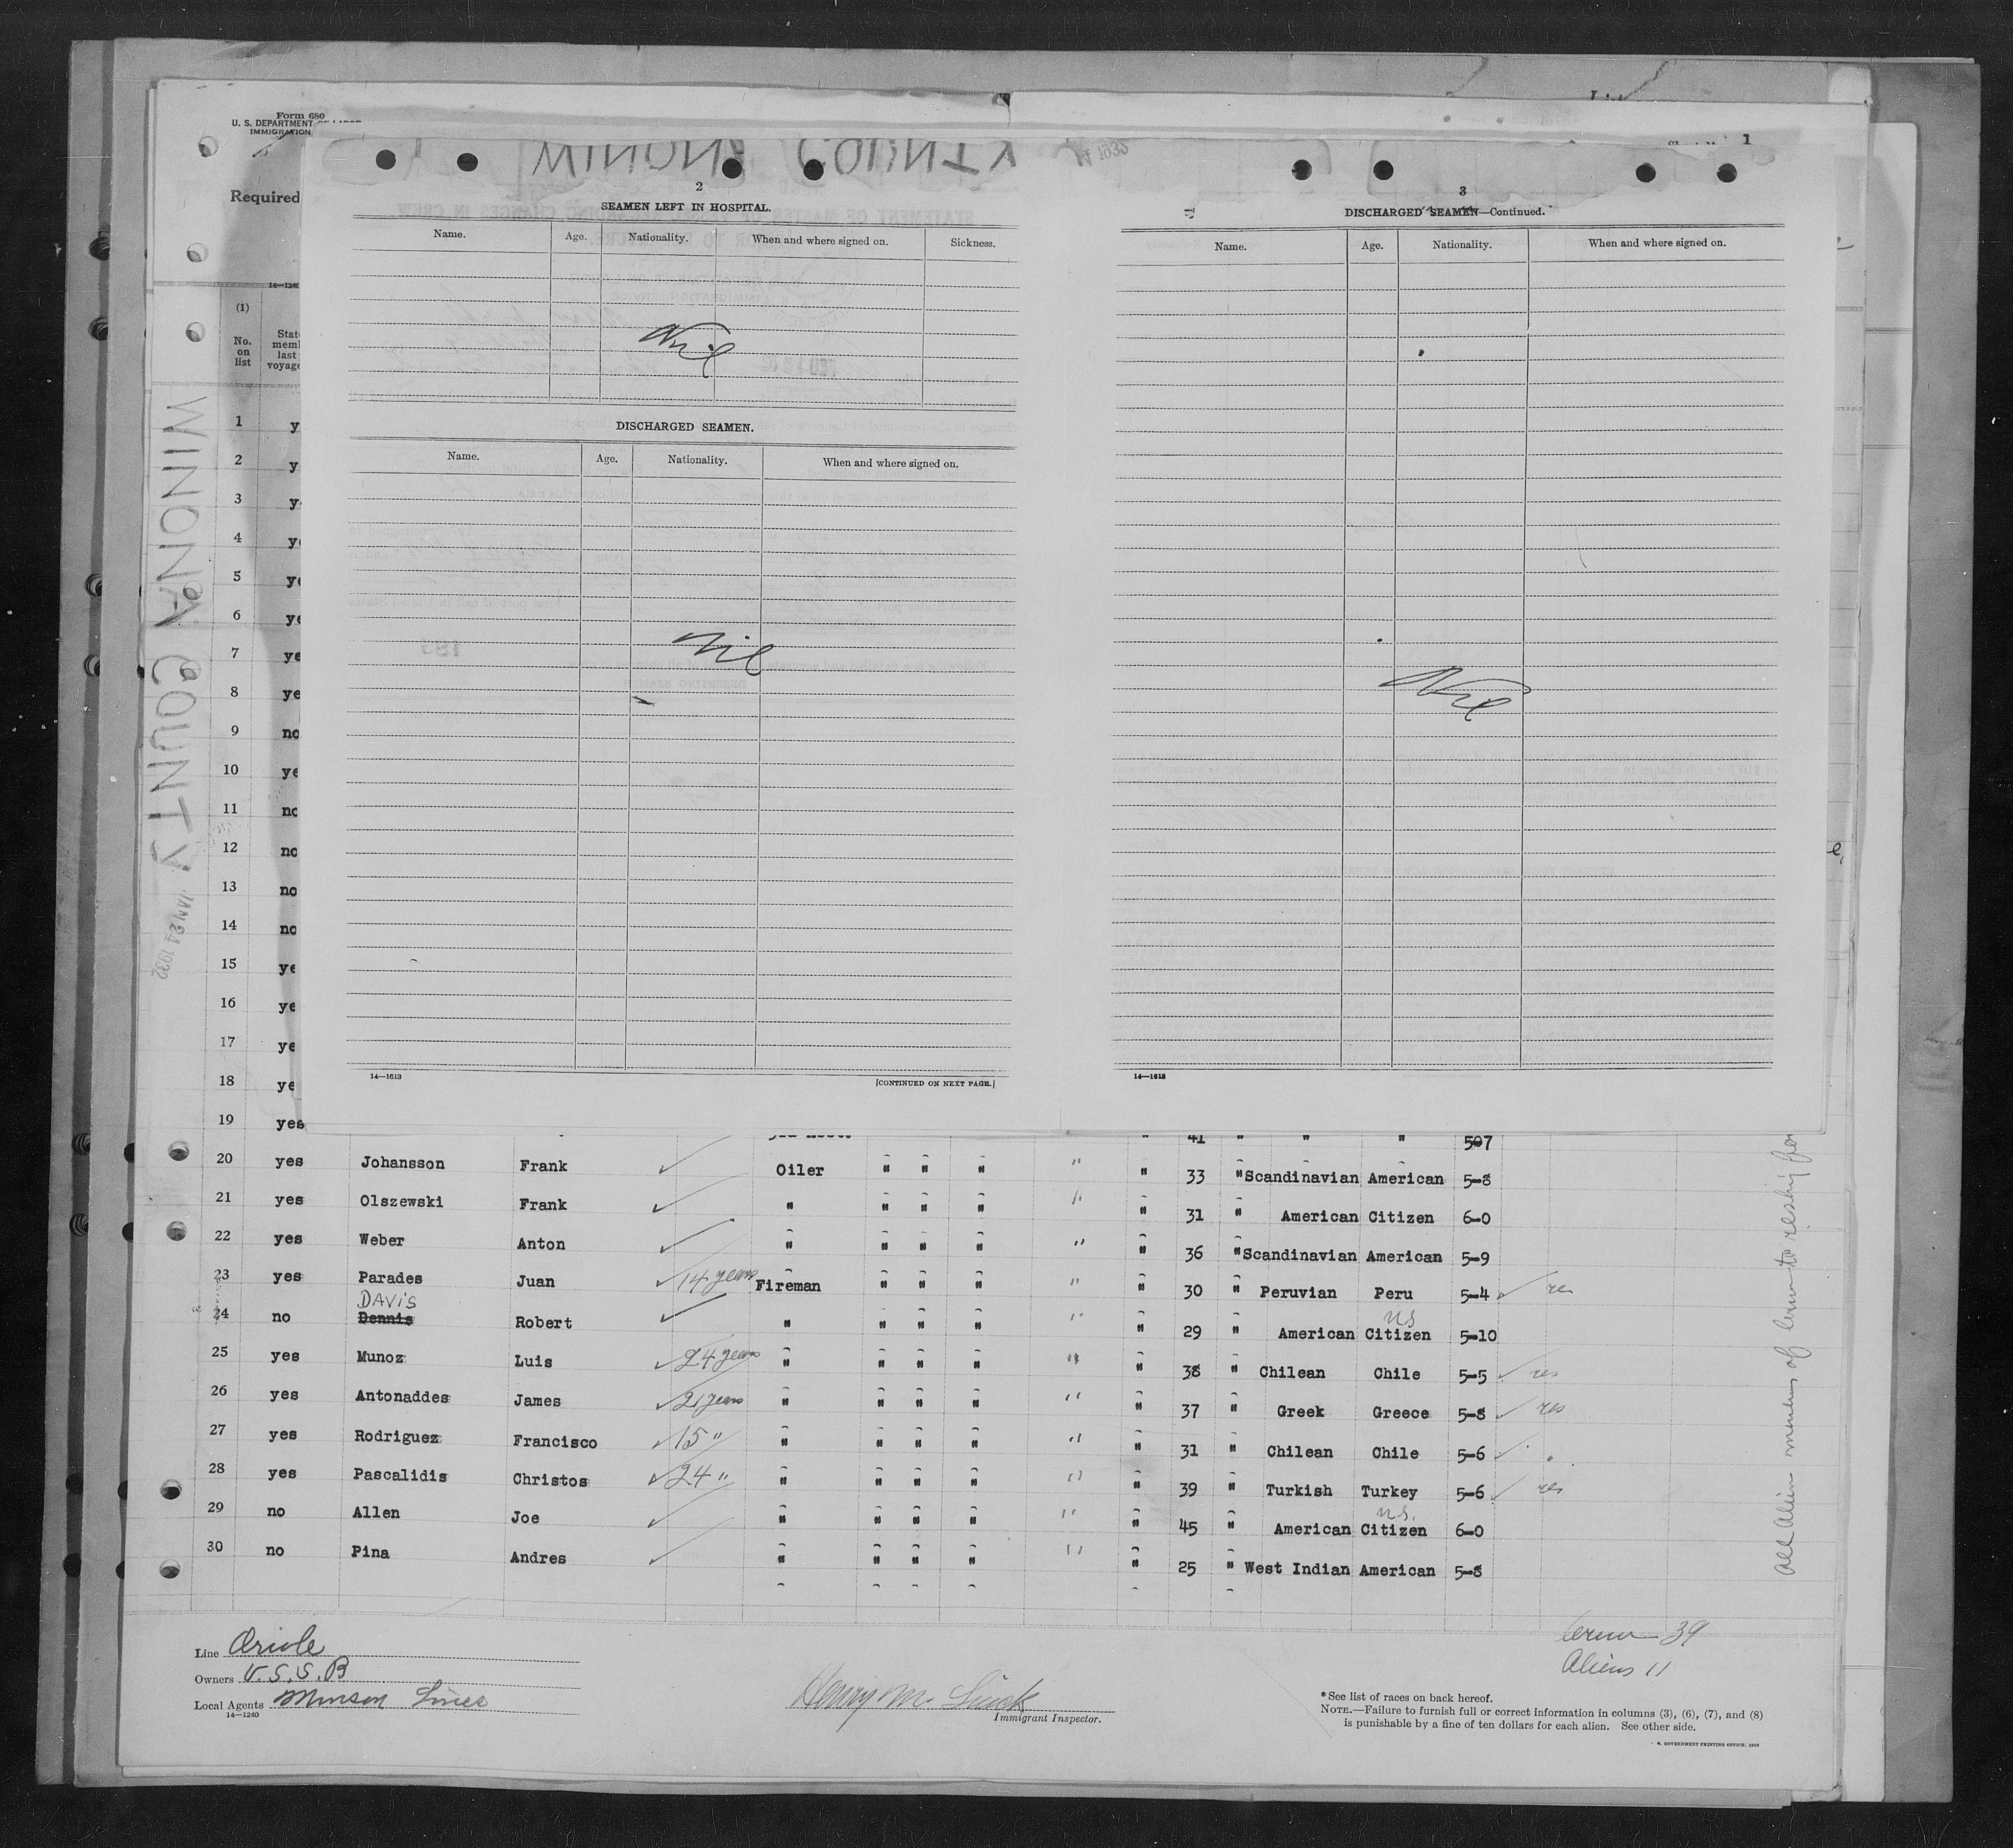 Form 680
U. S. DEPARTMENT OF LABOR
IMMIGRATION
Required
1
14—1240
(1)
No. on list
last
voyage
WINONA COUNTY
JAN 24 1932
WINONA COUNTY
1932
2
SEAMEN LEFT IN HOSPITAL.
Name. Age. Nationality. When and where signed on. Sickness.
Nil
DISCHARGED SEAMEN.
Name. Age. Nationality. When and where signed on.
Nil
14—1613
[CONTINUED ON NEXT PAGE.]
3
DISCHARGED SEAMEN—Continued.
Name. Age. Nationality. When and where signed on.
Nil
14—1613
1 y
2 y
3 y
4 ye
5 ye
6 ye
7 ye
8 ye
9 no
10 ye
11 no
12 no
13 no
14 no
15 ye
16 ye
17 ye
18 ye
19 yes " 41 " " " 507
20 yes Johansson Frank ✓ Oiler " " " " " 33 " Scandinavian American 5-8
21 yes Olszewski Frank ✓ " " " " " " 31 " American Citizen 6-0
22 yes Weber Anton ✓ " " " " " " 36 " Scandinavian American 5-9
23 yes Parades Juan ✓ 14 years Fireman " " " " " 30 " Peruvian Peru 5-4 ✓ res
DAVIS
24 no Dennis Robert ✓ " " " " " " 29 " American Citizen ns 5-10
25 yes Munoz Luis ✓ 24 years " " " " " " 38 " Chilean Chile 5-5 ✓ res
26 yes Antonaddes James ✓ 21 years " " " " " " 37 " Greek Greece 5-8 ✓ res
27 yes Rodriguez Francisco ✓ 15 " " " " " " " 31 " Chilean Chile 5-6 ✓ "
28 yes Pascalidis Christos ✓ 24 " " " " " " " 39 " Turkish Turkey 5-6 ✓ res
29 no Allen Joe ✓ " " " " " " 45 " American Citizen n.s. 6-0
30 no Pina Andres ✓ " " " " " " 25 " West Indian American 5-8
All Alien members of crew to reship for
Line Oriole
Owners U.S.S.B
Local Agents Munson Lines
14—1240
Henry M.
Immigrant Inspector.
Crew — 39
Aliens 11
* See list of races on back hereof.
NOTE.—Failure to furnish full or correct information in columns (3), (6), (7), and (8)
is punishable by a fine of ten dollars for each alien. See other side.
GOVERNMENT PRINTING OFFICE